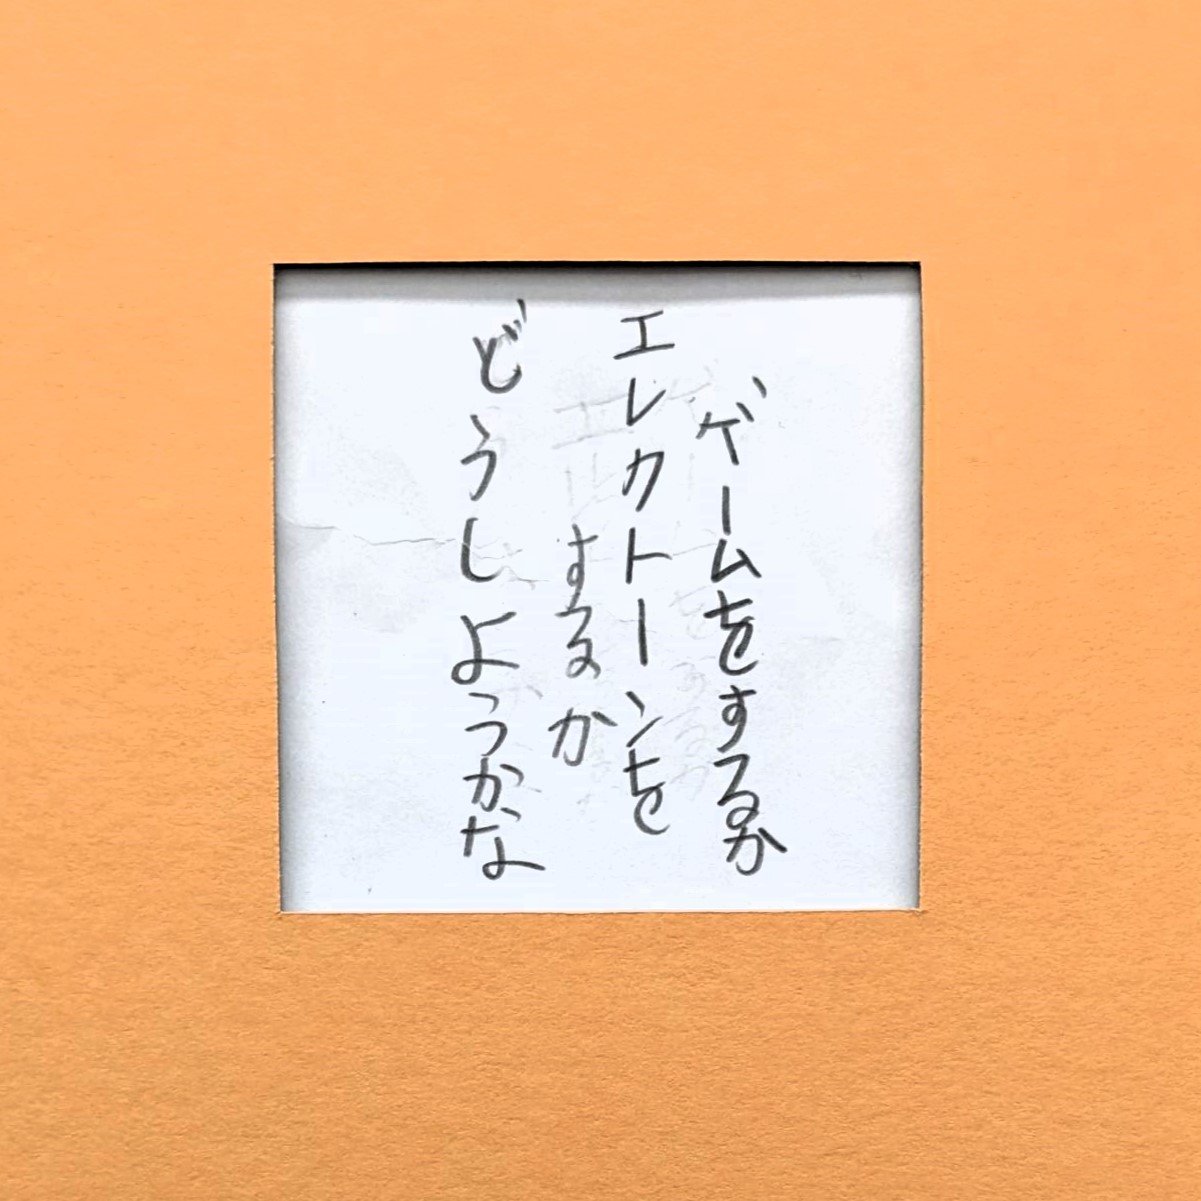 ゲームをするか
エレクトーンを
するか
どうしようかな